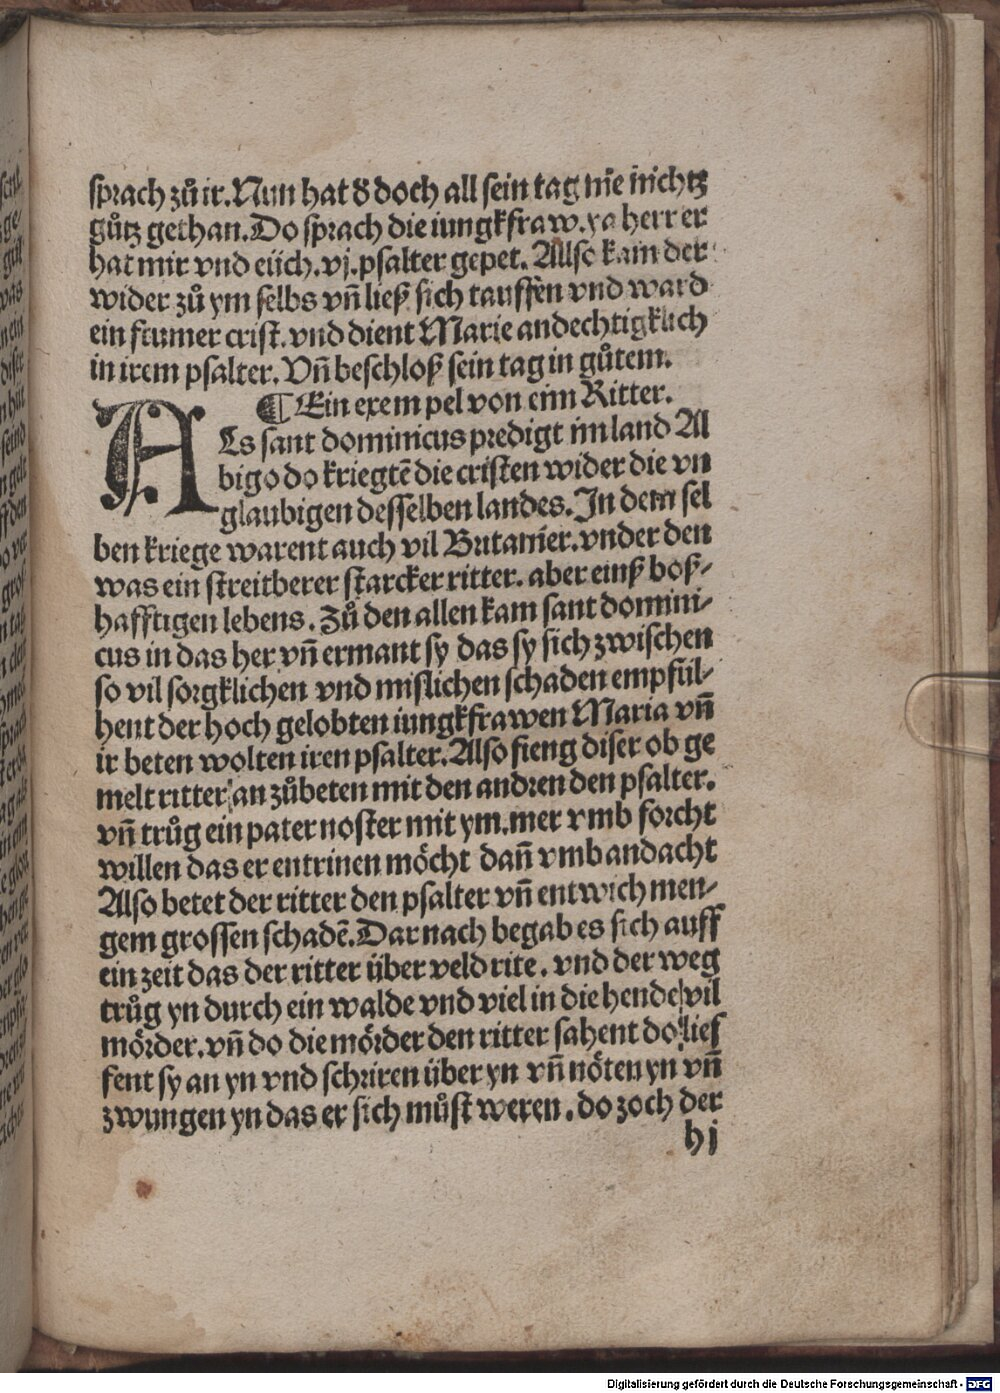 sprach zů ir. Nun hat d̕ doch all sein tag nie nichtz
gůtz gethan. Do sprach die iungkfraw. ya herr er
hat mir vnd eüch. vj. psalter gepet. Allso kam der
wider zů ym selbs vn̄ ließ sich tauffen vnd ward
ein frumer crist. vnd dient Marie andechtigklich
in irem psalter. Vn̄ beschloß sein tag in gůtem.
¶ Ein exempel von eim Ritter.
ALs sant dominicus predigt im land Al
bigo do kriegtē die cristen wider die vn
glaubigen desselben landes. In dem sel
ben kriege warent auch vil Butanier. vnder den
was ein streitberer starcker ritter. aber einß boß-
hafftigen lebens. Zů den allen kam sant domini-
cus in das her vn̄ ermant sy das sy sich zwischen
so vil sorgklichen vnd mislichen schaden empful-
hent der hoch gelobten iungkfrawen Maria vn̄
ir beten wolten iren psalter. Also fieng diser ob ge
melt ritter an zůbeten mit den andren den psalter.
vn̄ trůg ein pater noster mit ym. mer vmb forcht
willen das er entrinen möcht dan̄ vmb andacht
Also betet der ritter den psalter vn̄ entwich men-
gem grossen schadē. Dar nach begab es sich auff
ein zeit das der ritter über veld rite. vnd der weg
trůg yn durch ein walde vnd viel in die hende vil
mörder. vn̄ do die mörder den ritter sahent do lief
fent sy an yn vnd schriren über yn vn̄ nöten yn vn̄
zwungen yn das er sich můst weren. do zoch der
hj
Digitalisierung gefördert durch die Deutsche Forschungsgemeinschaft - DFG